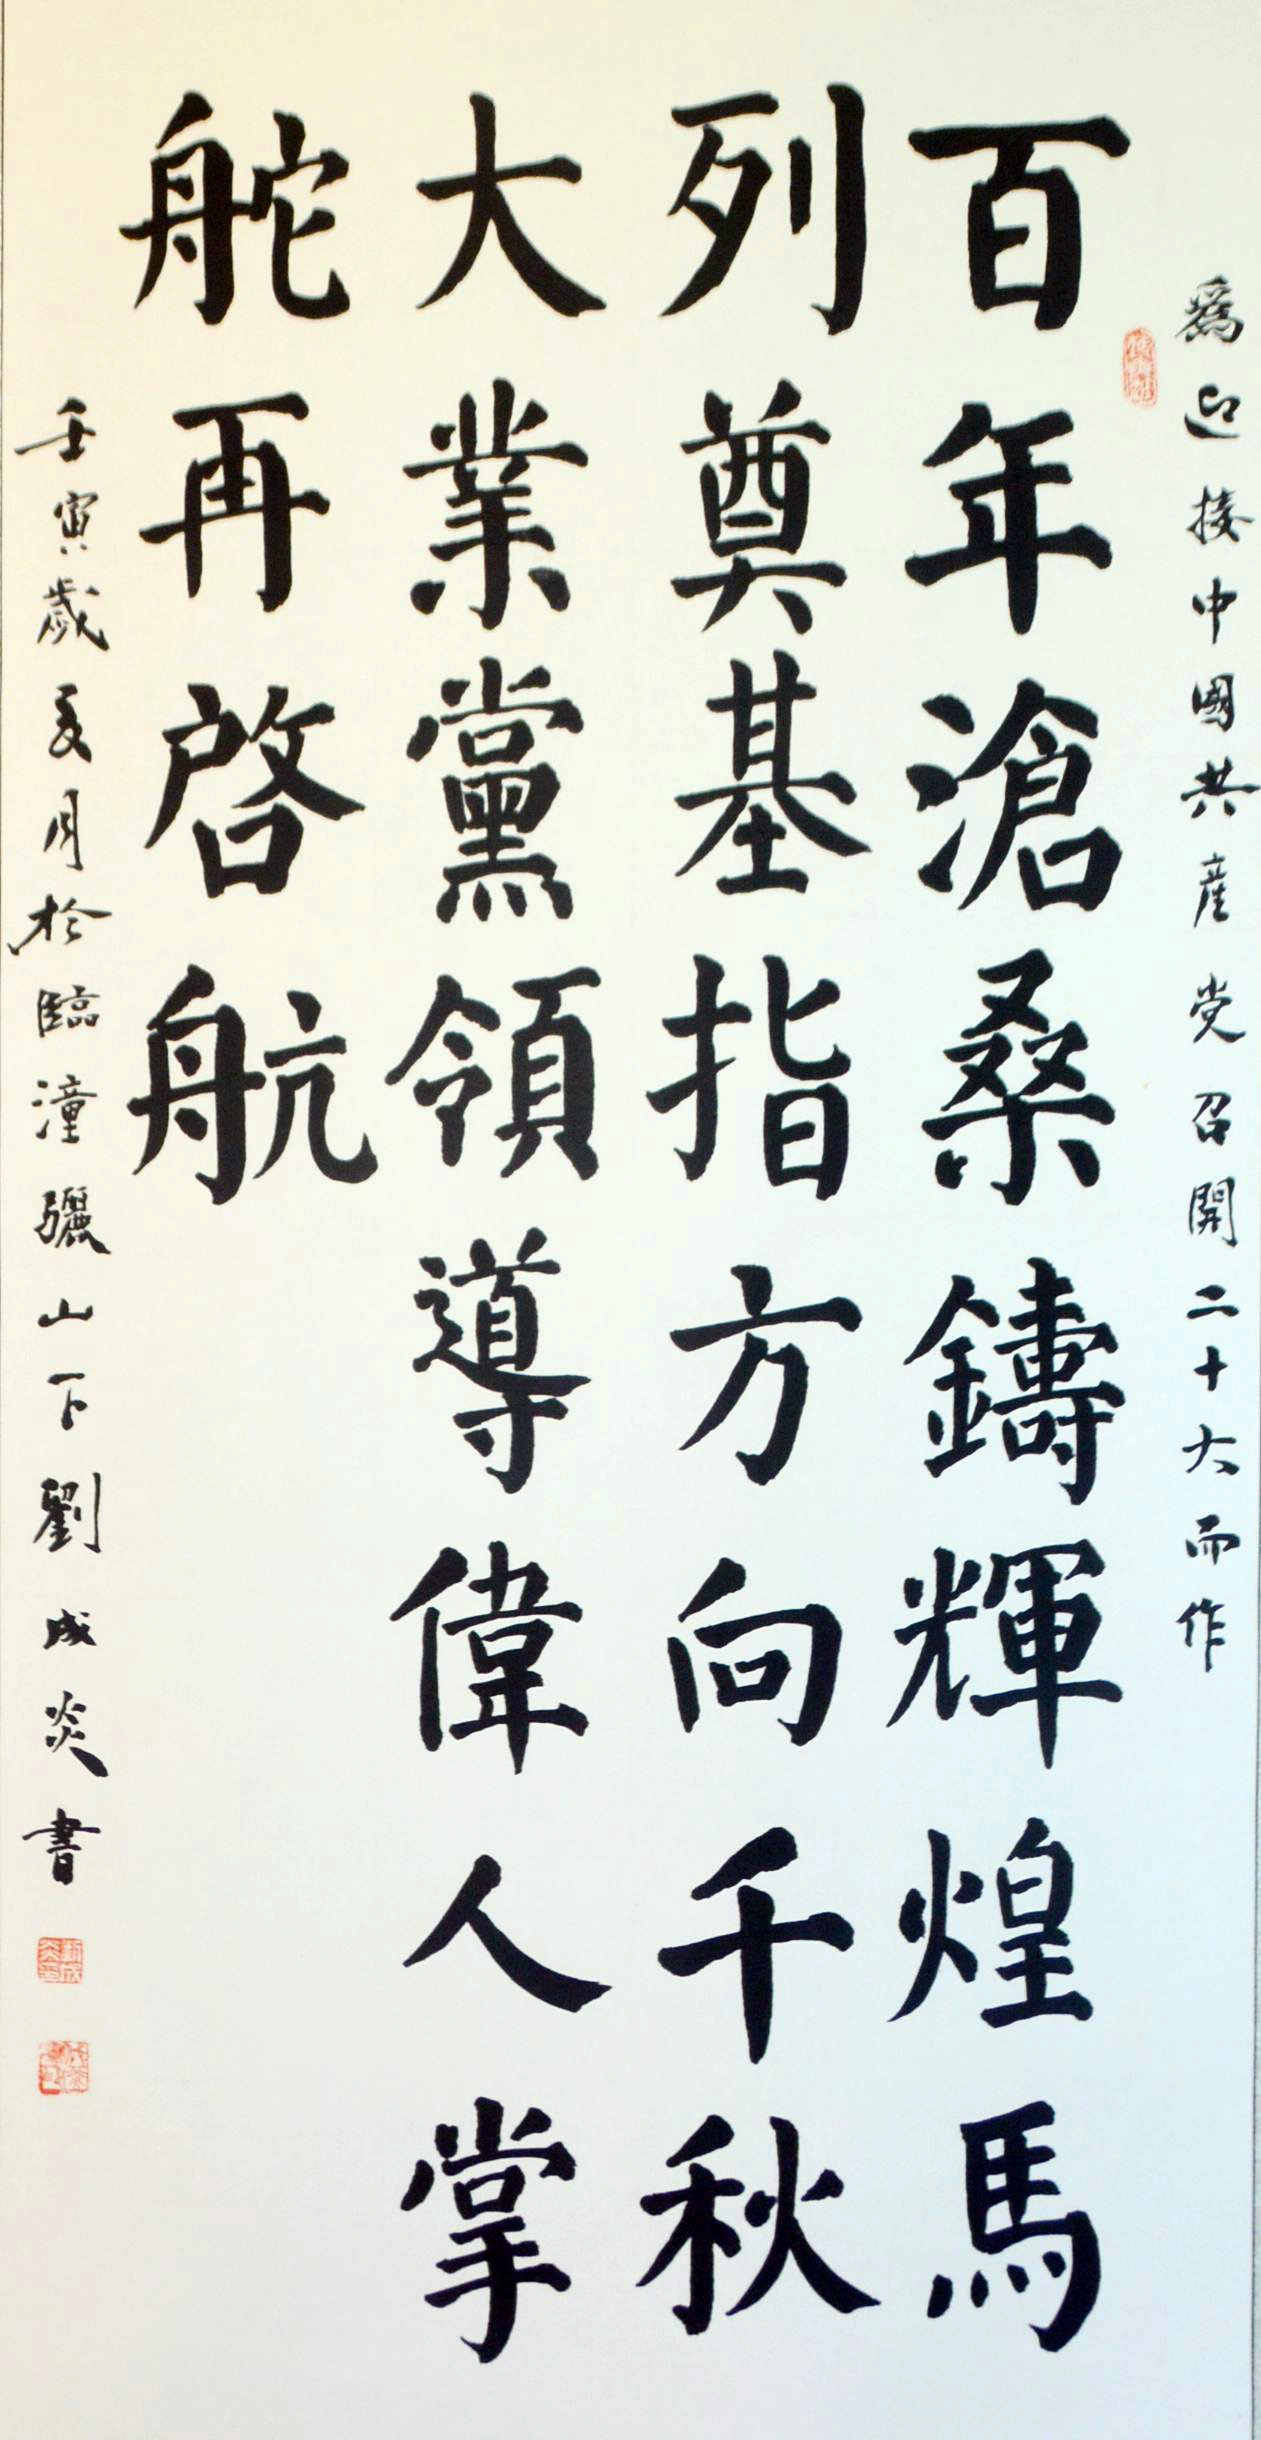 爲迎接中國共産党召開二十大而作
百年滄桑鑄輝煌馬
列奠基指方向千秋
大業黨領導偉人掌
舵再啓航
壬寅歲夏月於臨潼驪山下劉成炎書